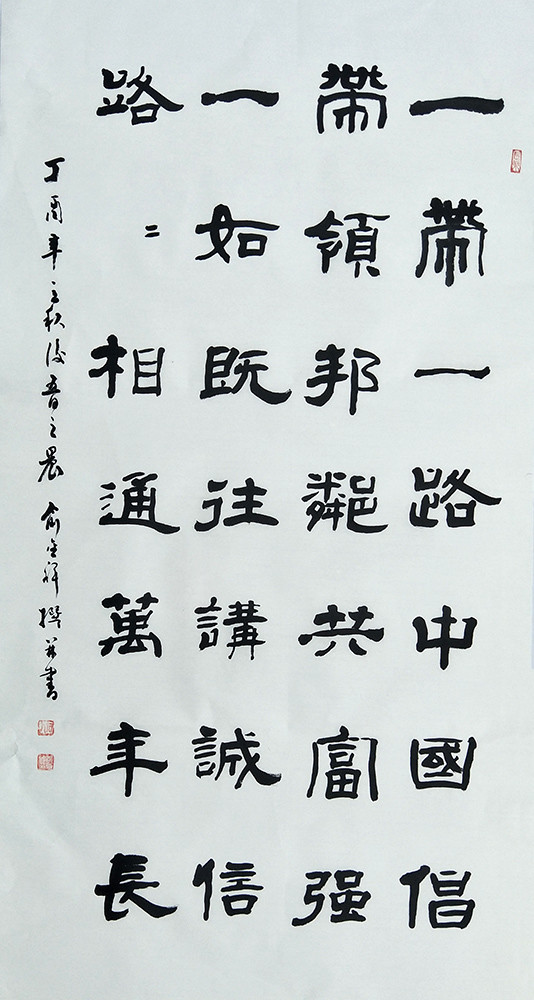 一帶一路中國倡
帶領邦鄰共富强
一如既往講誠信
路〻相通萬年長
丁酉年立秋後五日之晨 俞金祥撰並書